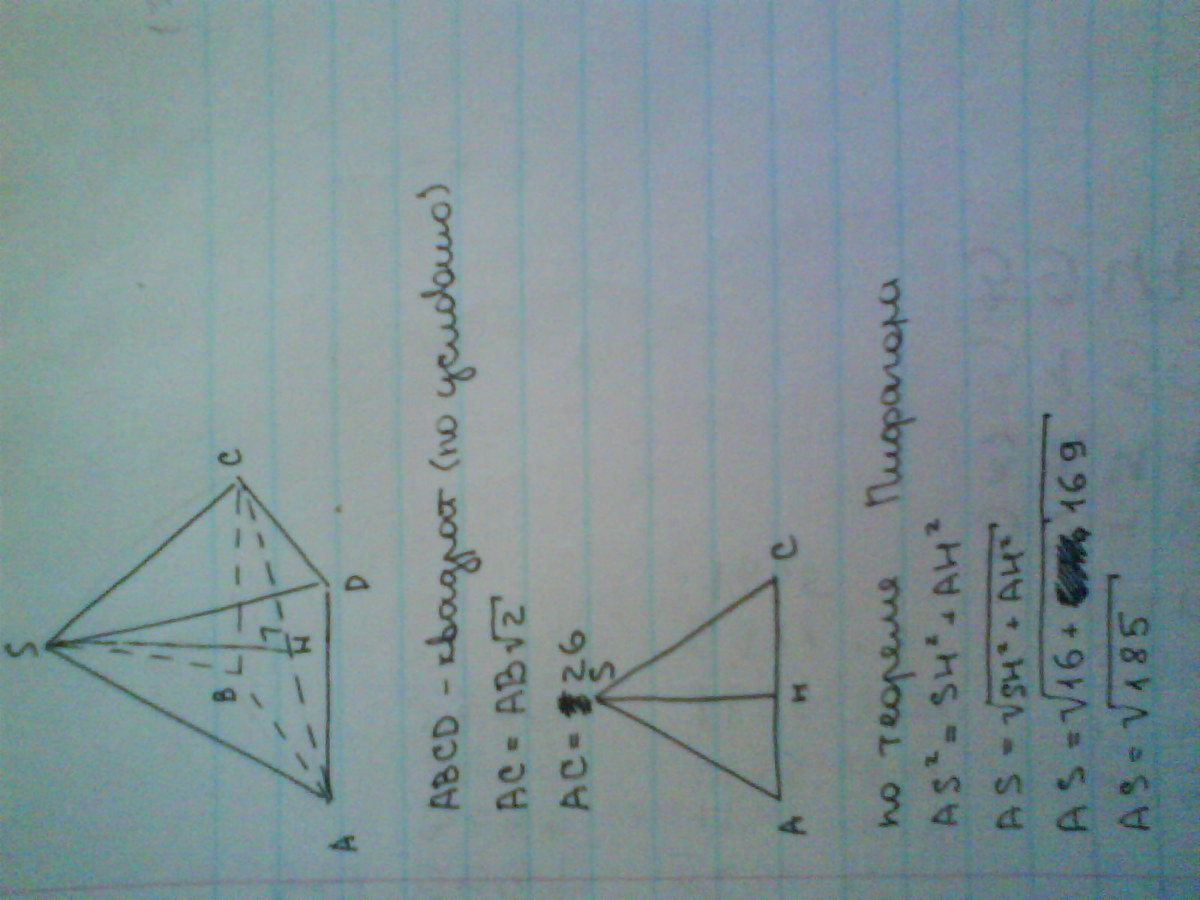 S
B
C
H
A
D
ABCD - квадрат (по условию)
AC = AB√2
AC = 26
S
A
H
C
по теореме Пифагора
AS² = SH² + AH²
AS = √SH² + AH²
AS = √16 + 169
AS = √185